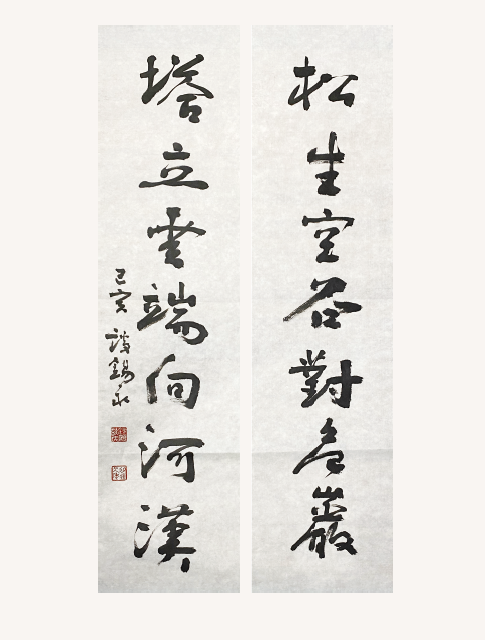 松生空谷對危巖
塔立雲端向河漢
己亥 錫永